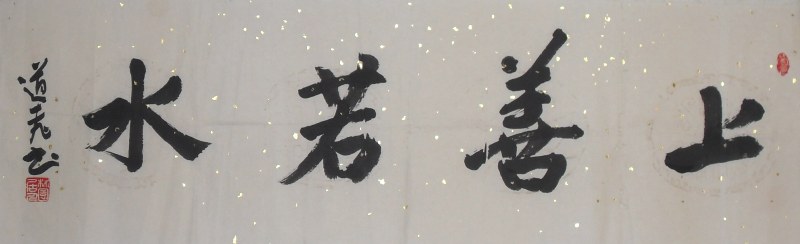 上善若水
道元书